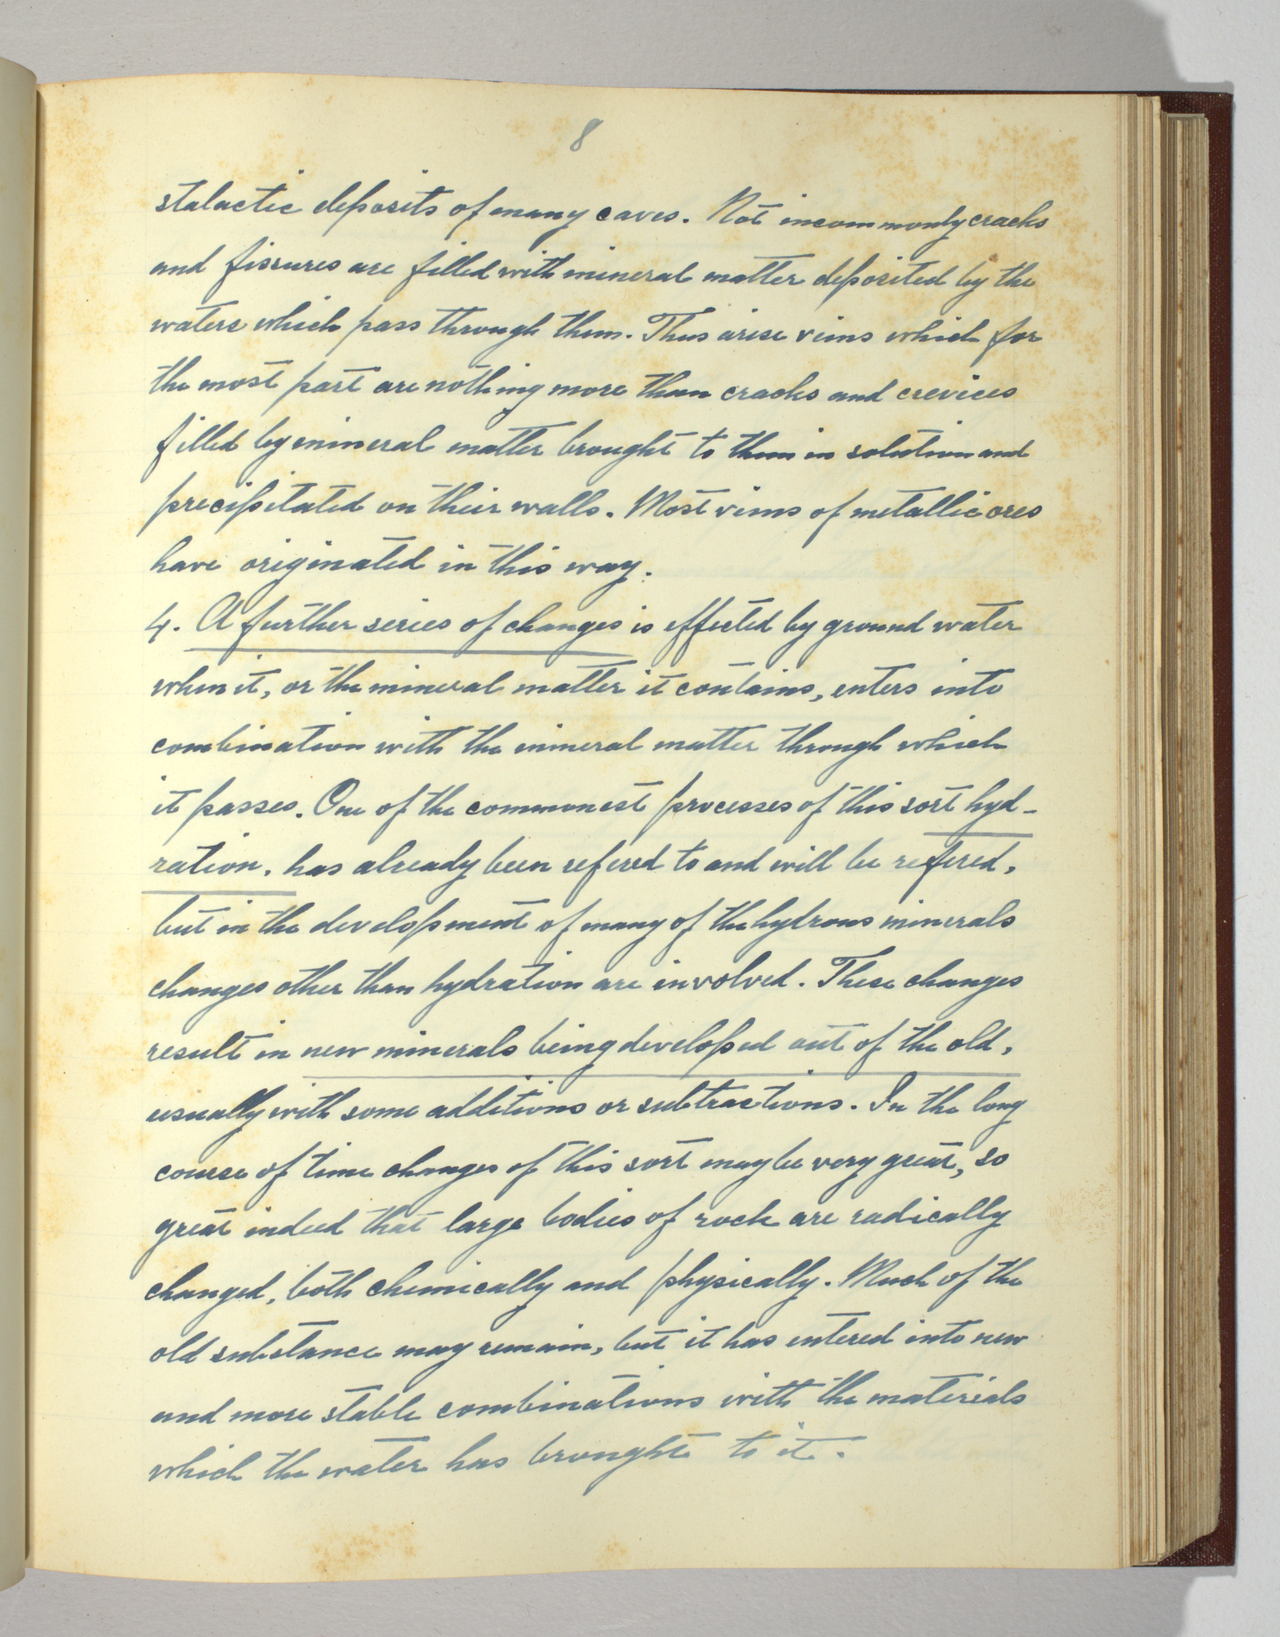 8
stalactic deposits of many caves. Not incommonly cracks
and fissures are filled with mineral matter deposited by the
waters which pass through them. Thus arise veins which for
the most part are nothing more than cracks and crevices
filled by mineral matter brought to them in solution and
precipitated on their walls. Most veins of metallic ores
have originated in this way.
4. A further series of changes is effected by ground water
when it, or the mineral matter it contains, enters into
combination with the mineral matter through which
it passes. One of the commonest processes of this sort hyd-
ration, has already been refered to and will be refered,
but in the development of many of the hydrous minerals
changes other than hydration are involved. These changes
result in new minerals being developed out of the old,
usually with some additions or subtractions. In the long
course of time changes of this sort may be very great, so
great indeed that large bodies of rock are radically
changed, both chemically and physically. Much of the
old substance may remain, but it has entered into new
and more stable combinations with the materials
which the water has brought to it.